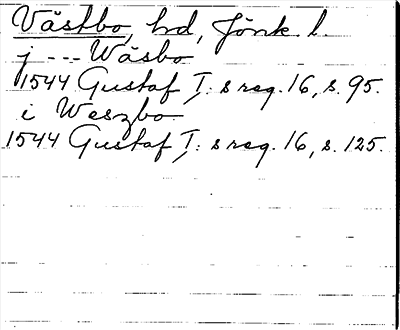 Västbo, hd, Jönk. l.
j --- Wäsbo
1544 Gustaf I: s reg. 16, s. 95.
i Weszbo
1544 Gustaf I: s reg. 16, s. 125.